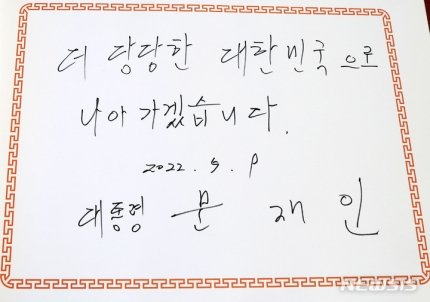 더 당당한 대한민국으로
나아가겠습니다.
2022. 5. 9
대통령 문 재 인
NEWSIS